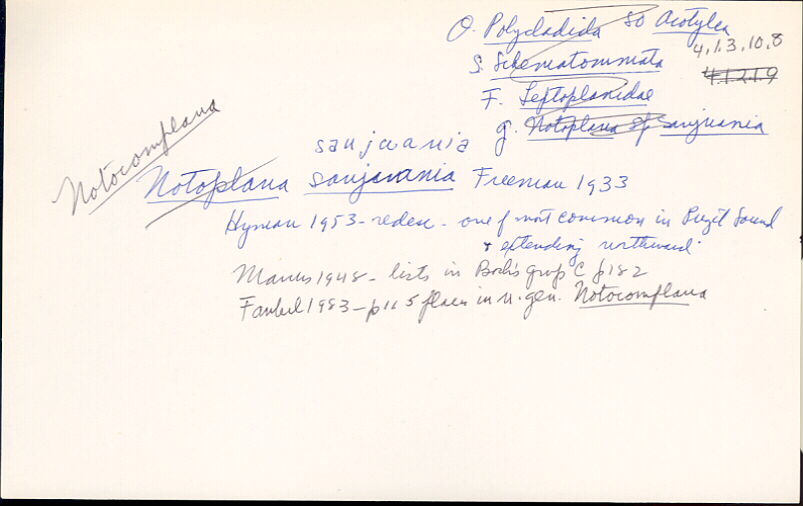 O. Polycladida SO Acotylea
4,1.3.10.8
S. Schematommata
4.1.2.1.9
F. Leptoplanidae
g. Notoplana sanjuania
Notocomplana
sanjuania
Notoplana sanjuania Freeman 1933
Hyman 1953 - redesc. - one of most common in Puget Sound
& extending northward
Marcus 1948 - lists in Bock's group C p182
Faubel 1983 - p115 places in n. gen. Notocomplana